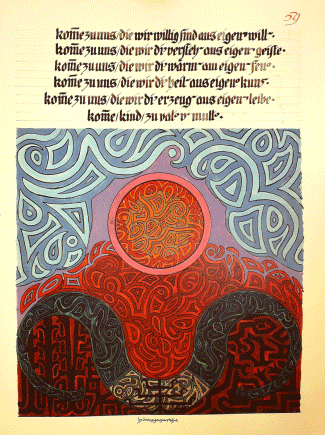 59
kom̄e zu uns / die wir willig sind aus eigen· will·
kom̄e zu uns / die wir di· versteh· aus eigen· geiste·
kom̄e zu uns / die wir di· wärm· am eigen· feu·
kom̄e zu uns / die wir di· heil· aus eigen· kun·
kom̄e zu uns / die wir di· erzeug· aus eigen· leibe·
kom̄e / kind / zu vat· mutt·